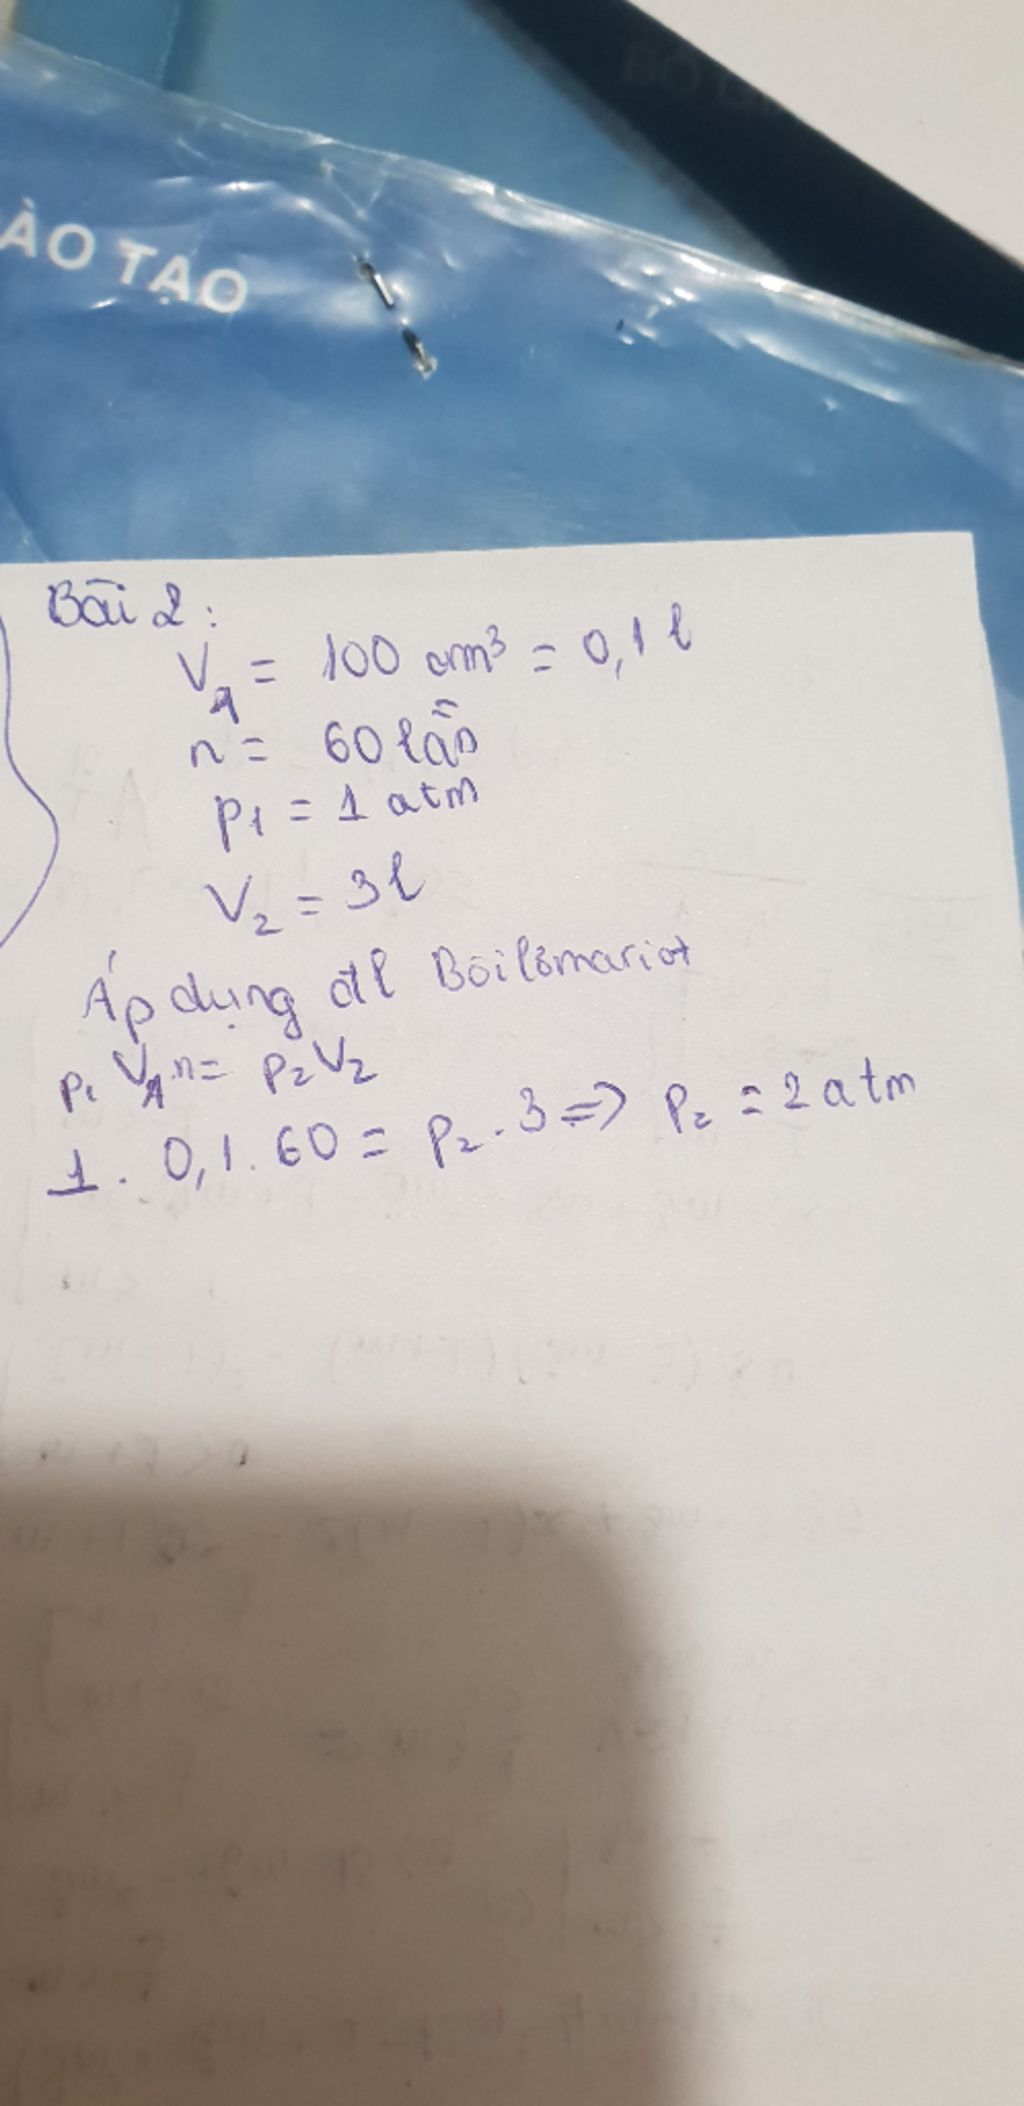 ÀO TẠO
Bài 2:
V₁ = 100 cm³ = 0,1 l
n = 60 lần
p₁ = 1 atm
V₂ = 3l
Áp dụng đl Bôilơmariot
p₁ V₁ n = p₂V₂
1 . 0,1 . 60 = p₂ . 3 => p₂ = 2 atm